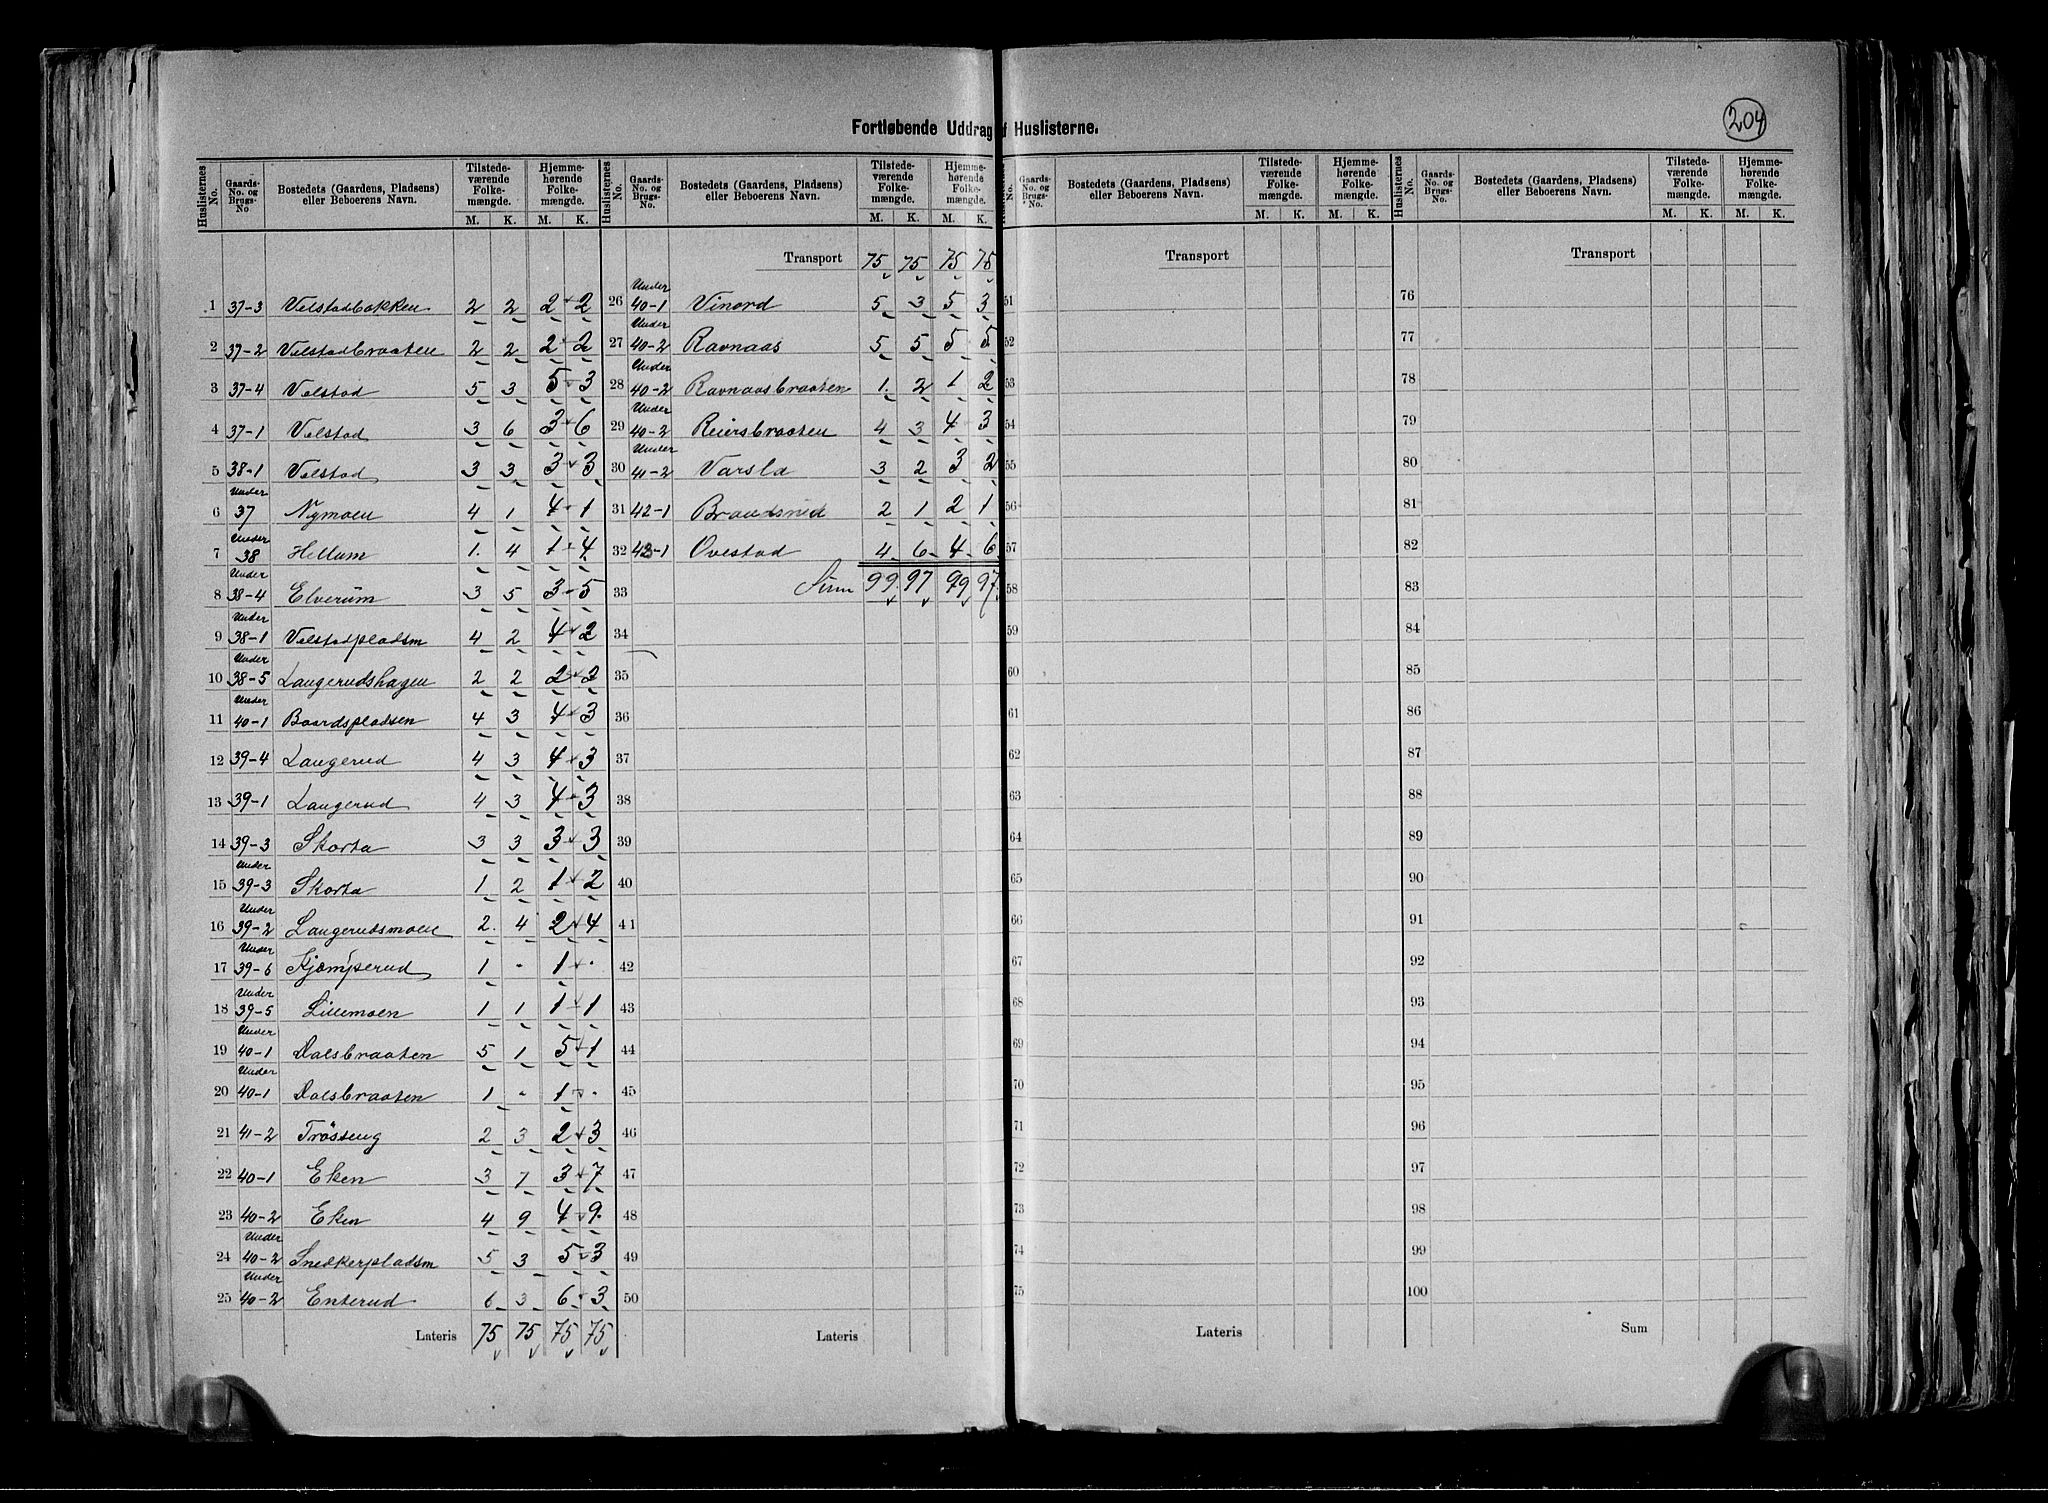 204
Fortløbende Uddrag af Huslisterne.
Huslisternes No. Gaards-No. og Brugs-No Bostedets (Gaardens, Pladsens) eller Beboerens Navn. Tilstedeværende Folkemængde. M. K. Hjemmehørende Folkemængde. M. K.
1 37-3 Velstadbakken 2 2 2 2
2 37-2 Velstadbraaten 2 2 2 2
3 37-4 Velstad 5 3 5 3
4 37-1 Velstad 3 6 3 6
5 38-1 Velstad 3 3 3 3
6 Under 37 Nymoen 4 1 4 1
7 Under 38 Hellum 1. 4 1 4
8 Under 38-4 Elverum 3 5 3 5
9 Under 38-1 Velstadpladsen 4 2 4 2
10 Under 38-5 Langerudshagen 2 2 2 2
11 Under 40-1 Baardspladsen 4 3 4 3
12 39-4 Langerud 4 3 4 3
13 39-1 Langerud 4 3 4 3
14 39-3 Skorta 3 3 3 3
15 Under 39-3 Skorta 1 2 1 2
16 Under 39-2 Langerudsmoen 2. 4 2 4
17 Under 39-6 Kjæmperud 1 - 1 -
18 Under 39-5 Lillemoen 1 1 1 1
19 Under 40-1 Dalsbraaten 5 1 5 1
20 Under 40-1 Dalsbraaten 1 - 1 -
21 41-2 Trösseng 2 3 2 3
22 40-1 Eken 3 7 3 7
23 40-2 Eken 4 9 4 9
24 Under 40-2 Snedkerpladsen 5 3 5 3
25 Under 40-2 Enterud 6 3 6 3
Lateris 75 75 75 75
Huslisternes No. Gaards-No. og Brugs-No. Bostedets (Gaardens, Pladsens) eller Beboerens Navn. Tilstedeværende Folkemængde. M. K. Hjemmehørende Folkemængde. M. K.
Transport 75 75 75 75
26 Under 40-1 Vinord 5 3 5 3
27 Under 40-2 Ravnaas 5 5 5 5
28 Under 40-2 Ravnaasbraaten 1. 2 1 2
29 Under 40-2 Reiersbraaten 4 3 4 3
30 Under 41-2 Varsla 3 2 3 2
31 42-1 2 1 2 1
32 43-1 Ovestad 4 6 4 6
33 Sum 99 97 99 97
34
35
36
37
38
39
40
41
42
43
44
45
46
47
48
49
50
Lateris
No. Gaards-No. og Brugs-No. Bostedets (Gaardens, Pladsens) eller Beboerens Navn. Tilstedeværende Folkemængde. M. K. Hjemmehørende Folkemængde. M. K.
Transport
51
52
53
54
55
56
57
58
59
60
61
62
63
64
65
66
67
68
69
70
71
72
73
74
75
Lateris
Huslisternes No. Gaards-No. og Brugs-No. Bostedets (Gaardens, Pladsens) eller Beboerens Navn. Tilstedeværende Folkemængde. M. K. Hjemmehørende Folkemængde. M. K.
Transport
76
77
78
79
80
81
82
83
84
85
86
87
88
89
90
91
92
93
94
95
96
97
98
99
100
Sum